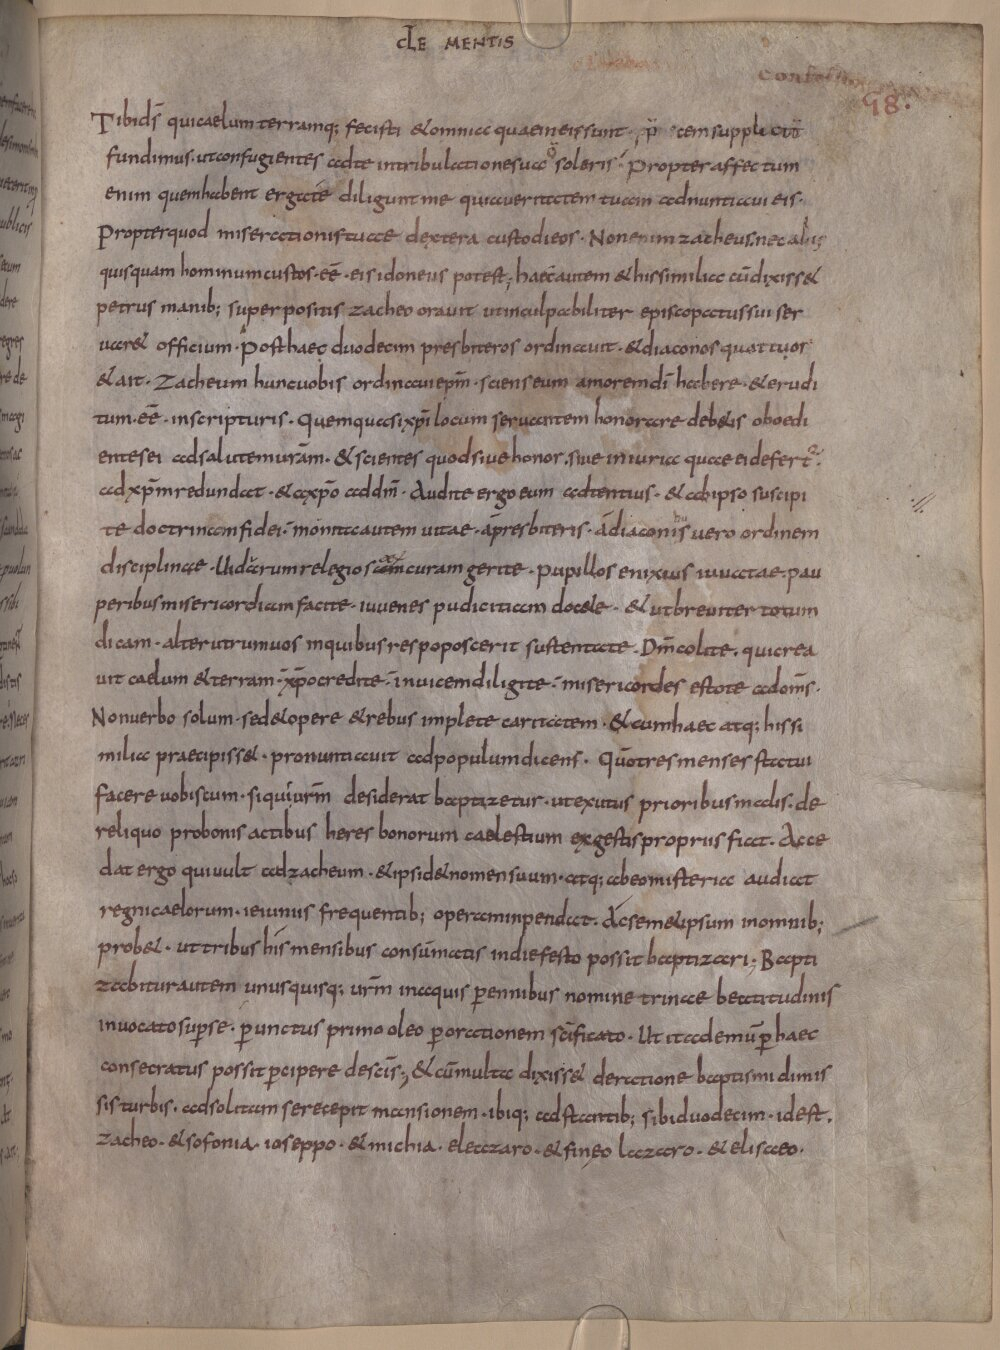 CLEMENTIS
98.
Tibi ds̄ qui caelum terramq; fecisti & omnia quae in eis sunt p̄cem supplicit̄
fundimus. ut confugientes ad te in tribulatione sua soleris. Propter affectum
enim quem habent erga te diligunt me qui a ueritatem tuam adnuntiaui eis.
Propter quod miserationis tuae dextera custodi eos. Non enim zacheus. nec alius
quisquam hominum custos. eē. eis idoneus potest; haec autem & his similia cū dixiss&
petrus manib; super positis zacheo orauit ut inculpabiliter episcopatus sui ser
uar& officium. Post haec duodecim presbiteros ordinauit. & diaconos quattuor
& ait. Zacheum hunc uobis ordinaui ep̄m. sciens eum amorem dī habere. & erudi
tum. eē. in scripturis. Quem quasi xp̄i locum seruantem honorare deb&is oboedi
entes ei ad salutem ur̄am. & scientes quod siue honor. siue iniuria quae ei defert̄.
ad xp̄m redundat. & a xp̄o ad dm̄. Audite ergo eum adtentius. & ab ipso suscipi
te doctrinam fidei. monita autem uitae. a presbiteris. a diaconis uero ordinem
disciplinae. Uiduarum relegiosam curam gerite. Pupillos enixius iuuate. pau
peribus misericordiam facite. iuuenes pudicitiam doc&e. & ut breuiter totum
dicam. alterutrum uos in quibus respoposcerit sustentate. Dm̄ colite. qui crea
uit caelum & terram. xp̄o credite. inuicem diligite. misericordes estote ad om̄s.
Non uerbo solum. sed & opere & rebus implete caritatem. & cum haec atq; his si
milia praecipiss&. pronuntiauit ad populum dicens. Qūo tres menses statui
facere uobiscum. si qui ur̄m desiderat baptizetur. ut exutus prioribus malis. de
reliquo pro bonis actibus heres bonorum caelestium ex gestis propriis fiat. Acce
dat ergo qui uult ad zacheum. & ipsi d& nomen suum. atq; ab eo misteria audiat
regni caelorum. ieiuniis frequentib; operam inpendat. Ac sem&ipsum in omnib;
prob&. ut tribus his mensibus consūmatis in die festo possit baptizari; Bapti
zabitur autem unusquisq; ur̄m in aquis p̄ennibus nomine trinae beatitudinis
inuocato sup̄ se. p̄unctus primo oleo p̄ orationem sc̄ificato. Ut ita demū p̄ haec
consecratus possit p̄cipere de sc̄is; & cū multa dixiss& de ratione baptismi dimis
sis turbis. ad solitam se recepit mansionem. ibiq; adstantib; sibi duodecim. id est.
zacheo. & sofonia. ioseppo. & michia. eleazaro. & fineo lazaro. & elisaeo.